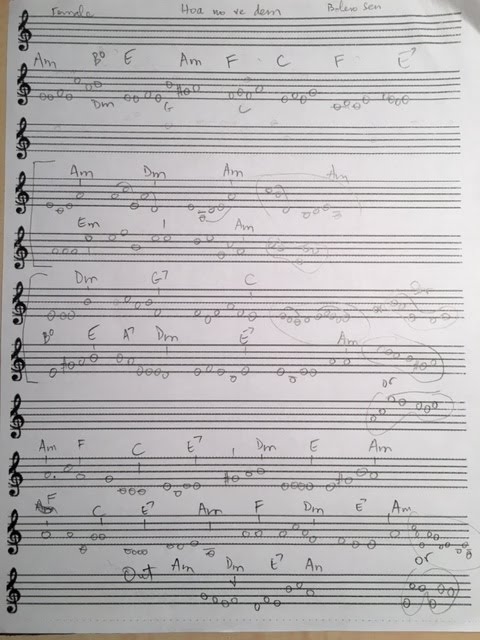 Hoa no ve dem
Am B° E Am F C F E7
Dm G C
Am Dm Am Am
Em Am
Dm G7 C
B° E A7 Dm E7 Am
or
Am F C E7 Dm E Am
F C E7 Am F Dm E7 Am
or
Out Am Dm E7 Am